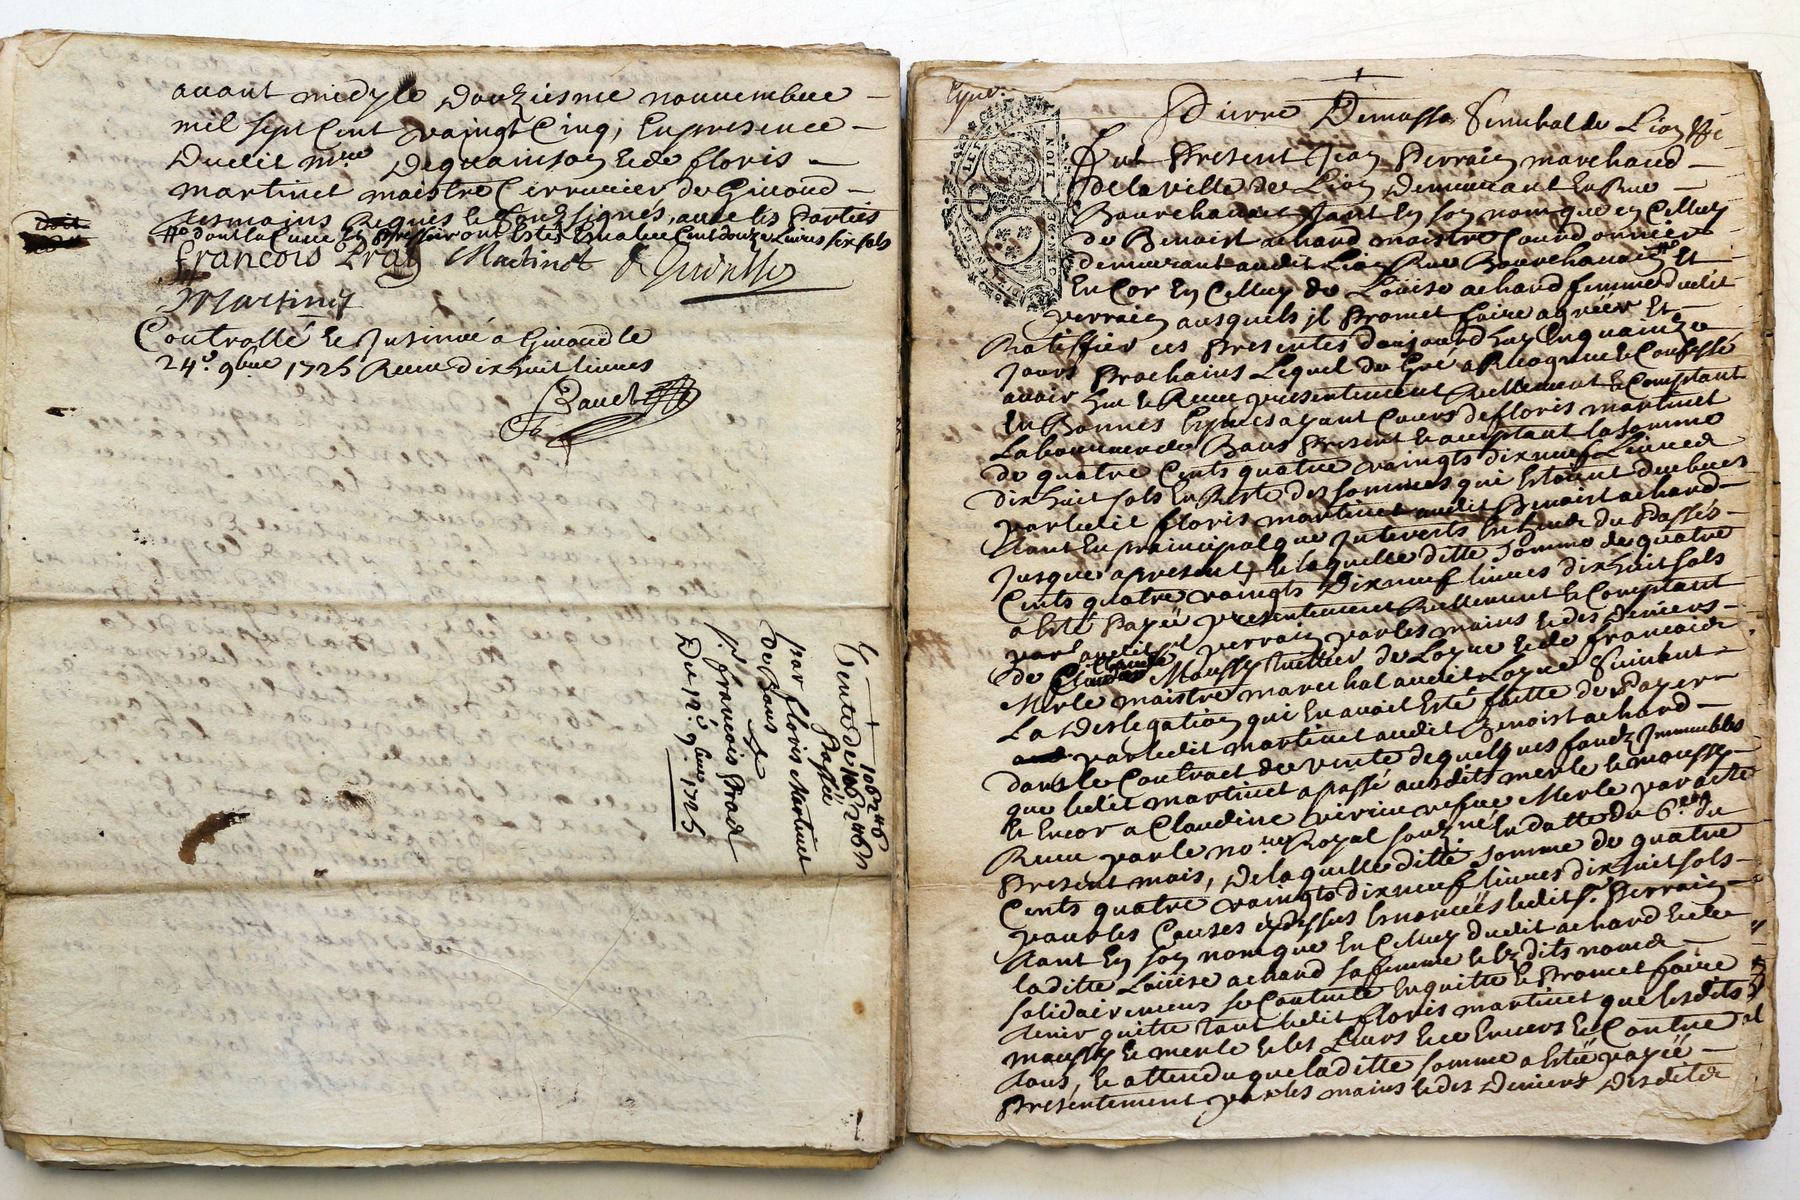 avant midy le douziesme nouvembre
mil sept cent vaingt cinq, en presence
dudit mre Dequainson et de floris
martinet maistre serrurier de Givord
tesmains requis et soubzsignés avec les parties
dont la Cuve et pressoir ont estés
françois prat Martinet
Martinet
Controllé et Insinué a Givord le
24e 9bre 1725 Receu dix huit livres
Baudt
Vente de 106
passée
par floris Martinet
de Bans
a
sr. françois Prat
Du 12e 9bre 1725
Lyon
GEN DE LION
Pierre Demasso Senechal de Lion
fut Present Jean Perrain marchand
de la ville de Lion demeurant en Rue
Bourchanain tant en son nom que en Celluy
de Benoist achard maistre Courdonnier
demeurant audit Lion Rue Bourchanain Et
en Cor en Celluy de Louise achard femme dudit
perrain ausquels il Promet faire agréer Et
Ratiffier ces Presentes d'aujourd huy en quainze
jours Prochains Lequel du Gré a Recogneu et Confessé
avoir heu et Receu presentement Reellement et Comptant
en Bonnes Especes ayant Cours de floris martinet
Laboureur de Bans Present et acceptant la somme
de quatre Cents quatre vaingts dix neuf Livres
dix huit sols en Reste des sommes qui estoient dheues
par ledit floris martinet audit Benoist achard
tant en Praincipal que Interests
jusques a present, et laquelle ditte somme de quatre
Cents quatre vaingts dix neuf livres dix huit sols
a esté Payé presentement Reellement et Comptant
par audit sr perrain par les mains et des deniers
de Claude Moussy tuillier de Loyne et de francois
Merle maistre marechal audit Loyne Suivant
La deslegation qui en avait esté faitte de Payer
par ledit martinet audit Benoist achard
dans le Contract de vente de quelques fondz Immeubles
que ledit martinet a passé ausdits merle et moussy
et Encor a Claudine veufve Merle par acte
Receu par le nore Royal soubzné en datte du 6e du
Present mois, de laquelle ditte somme de quatre
Cents quatre vaingts dix neuf livres dix huit sols
pour les Causes cydessus enoncées ledit sr. Perrain
tant en son nom que en Celluy dudit achard et de
laditte Loüise achard sa femme et lesdits noms
solidairement se Contente en quitte et Promet faire
tenir quitte tant ledit floris martinet que lesdits
moussy et merle et les Leurs Envers et Contre
tous, et attendu que laditte somme a estée payée
Presentement par les mains et des Deniers desdits